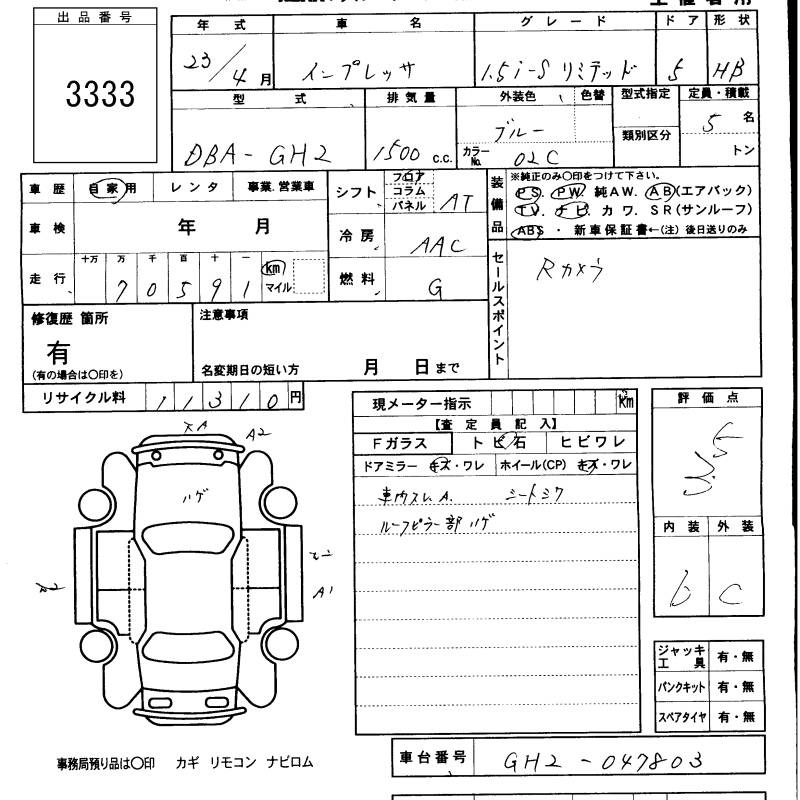 出品番号
3333
年式 車名 グレード ドア 形状
23/4月 インプレッサ 1.5i-S リミテッド 5 HB
型式 排気量 外装色 色替 型式指定 定員・積載
DBA-GH2 1500 c.c. ブルー 類別区分 5名
カラーNo. 02C トン
車歴 自家用 レンタ 事業.営業車
車検 年 月
走行 十万 万 千 百 十 一 km
70591 マイル
シフト フロア コラム パネル AT
冷房 AAC
燃料 G
装備品 ※純正のみ〇印をつけて下さい。
PS. PW. 純AW. AB(エアバック)
TV. ナビ. カワ. SR(サンルーフ)
ABS ・ 新車保証書←(注) 後日送りのみ
セールスポイント
Rカメラ
修復歴 箇所
有
(有の場合は〇印を)
注意事項
名変期日の短い方 月 日まで
リサイクル料 11310円
現メーター指示 km
【査定員記入】
Fガラス トビ石 ヒビワレ
ドアミラー キズ・ワレ ホイール(CP) キズ・ワレ
車内スレA. シートシワ
ルーフピラー部ハゲ
評価点
内装 外装
b C
A2
ハゲ
A1
ジャッキ工具 有・無
パンクキット 有・無
スペアタイヤ 有・無
事務局預り品は〇印 カギ リモコン ナビロム
車台番号 GH2-047803